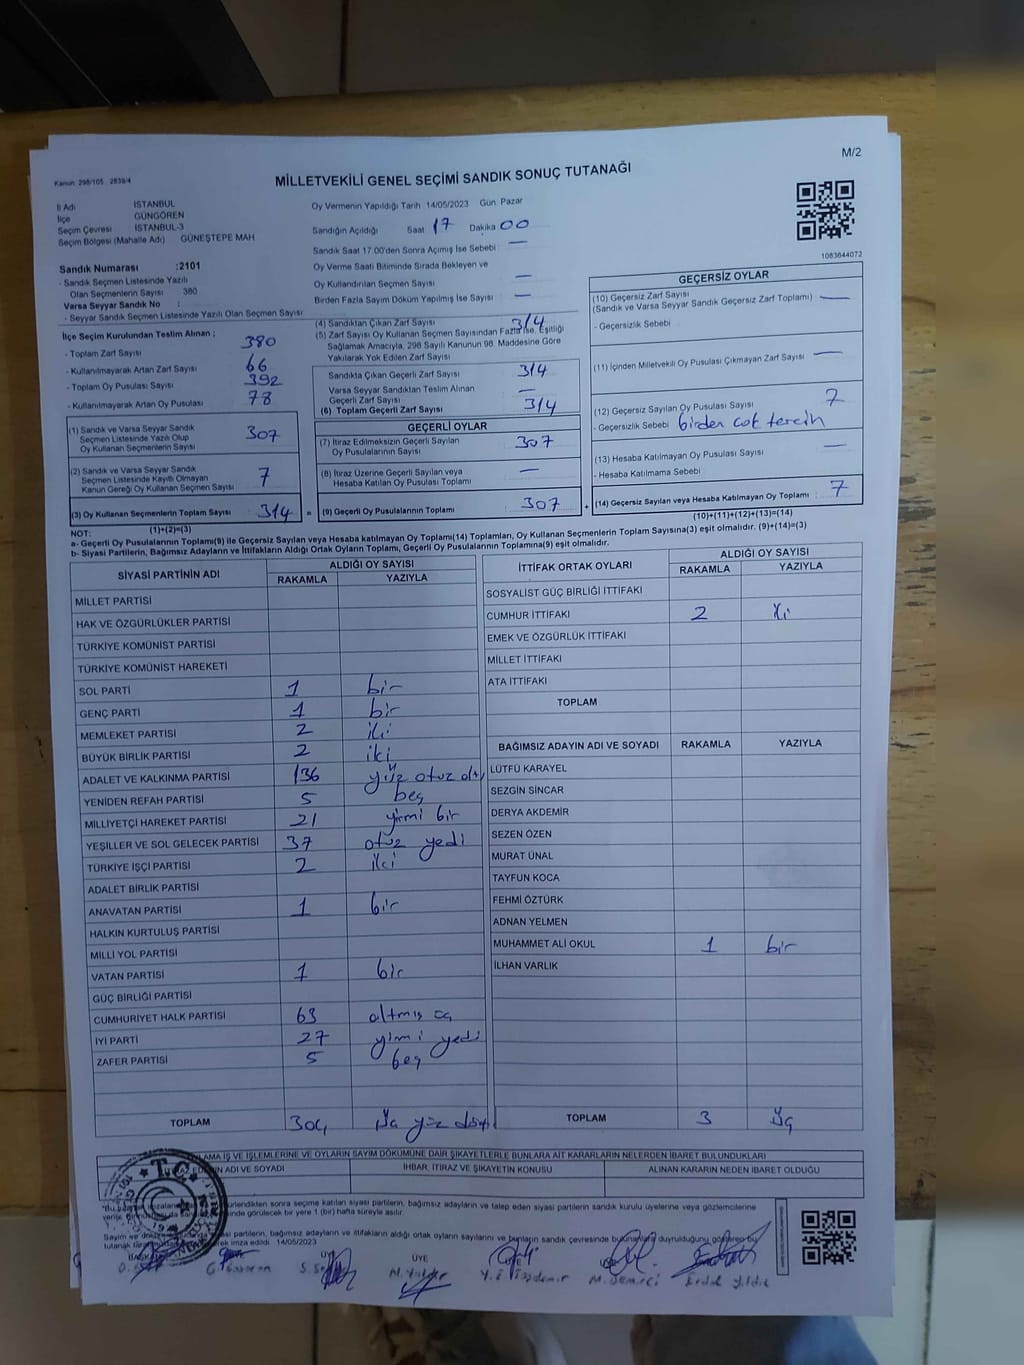 M/2
Kanun 298/105 2839/4
MİLLETVEKİLİ GENEL SEÇİMİ SANDIK SONUÇ TUTANAĞI
İl Adı İSTANBUL
İlçe GÜNGÖREN
Seçim Çevresi İSTANBUL-3
Seçim Bölgesi (Mahalle Adı) GÜNEŞTEPE MAH
Oy Vermenin Yapıldığı Tarih 14/05/2023 Gün Pazar
Sandığın Açıldığı Saat 17 Dakika 00
Sandık Saat 17.00'den Sonra Açımış İse Sebebi : —
Oy Verme Saati Bitiminde Sırada Bekleyen ve
Oy Kullandırılan Seçmen Sayısı —
Birden Fazla Sayım Döküm Yapılmış İse Sayısı : —
1083644072
Sandık Numarası :2101
- Sandık Seçmen Listesinde Yazılı
Olan Seçmenlerin Sayısı : 380
Varsa Seyyar Sandık No :
- Seyyar Sandık Seçmen Listesinde Yazılı Olan Seçmen Sayısı
İlçe Seçim Kurulundan Teslim Alınan ;
- Toplam Zarf Sayısı 380
- Kullanılmayarak Artan Zarf Sayısı 66
- Toplam Oy Pusulası Sayısı 392
- Kullanılmayarak Artan Oy Pusulası 78
(1) Sandık ve Varsa Seyyar Sandık
Seçmen Listesinde Yazılı Olup
Oy Kullanan Seçmenlerin Sayısı 307
(2) Sandık ve Varsa Seyyar Sandık
Seçmen Listesinde Kayıtlı Olmayan
Kanun Gereği Oy Kullanan Seçmen Sayısı 7
(3) Oy Kullanan Seçmenlerin Toplam Sayısı 314 =
(1)+(2)=(3)
(4) Sandıktan Çıkan Zarf Sayısı 314
(5) Zarf Sayısı Oy Kullanan Seçmen Sayısından Fazla ise, Eşitliği
Sağlamak Amacıyla, 298 Sayılı Kanunun 98. Maddesine Göre
Yakılarak Yok Edilen Zarf Sayısı
Sandıkta Çıkan Geçerli Zarf Sayısı 314
Varsa Seyyar Sandıktan Teslim Alınan
Geçerli Zarf Sayısı —
(6) Toplam Geçerli Zarf Sayısı 314
GEÇERLİ OYLAR
(7) İtiraz Edilmeksizin Geçerli Sayılan
Oy Pusulalarının Sayısı 307
(8) İtiraz Üzerine Geçerli Sayılan veya
Hesaba Katılan Oy Pusulası Toplamı —
(9) Geçerli Oy Pusulalarının Toplamı 307 +
GEÇERSİZ OYLAR
(10) Geçersiz Zarf Sayısı
(Sandık ve Varsa Seyyar Sandık Geçersiz Zarf Toplamı) —
- Geçersizlik Sebebi :
(11) İçinden Milletvekili Oy Pusulası Çıkmayan Zarf Sayısı —
(12) Geçersiz Sayılan Oy Pusulası Sayısı 7
- Geçersizlik Sebebi : birden cok tercih
(13) Hesaba Katılmayan Oy Pusulası Sayısı —
- Hesaba Katılmama Sebebi
(14) Geçersiz Sayılan veya Hesaba Katılmayan Oy Toplamı 7
(10)+(11)+(12)+(13)=(14)
NOT:
a- Geçerli Oy Pusulalarının Toplamı(9) ile Geçersiz Sayılan veya Hesaba katılmayan Oy Toplamı(14) Toplamları, Oy Kullanan Seçmenlerin Toplam Sayısına(3) eşit olmalıdır. (9)+(14)=(3)
b- Siyasi Partilerin, Bağımsız Adayların ve İttifakların Aldığı Ortak Oyların Toplamı, Geçerli Oy Pusulalarının Toplamına(9) eşit olmalıdır.
SİYASİ PARTİNİN ADI ALDIĞI OY SAYISI
RAKAMLA YAZIYLA
MİLLET PARTİSİ
HAK VE ÖZGÜRLÜKLER PARTİSİ
TÜRKİYE KOMÜNİST PARTİSİ
TÜRKİYE KOMÜNİST HAREKETİ
SOL PARTİ 1 bir
GENÇ PARTİ 1 bir
MEMLEKET PARTİSİ 2 iki
BÜYÜK BİRLİK PARTİSİ 2 iki
ADALET VE KALKINMA PARTİSİ 136 yüz otuz altı
YENİDEN REFAH PARTİSİ 5 beş
MİLLİYETÇİ HAREKET PARTİSİ 21 yirmi bir
YEŞİLLER VE SOL GELECEK PARTİSİ 37 otuz yedi
TÜRKİYE İŞÇİ PARTİSİ 2 iki
ADALET BİRLİK PARTİSİ
ANAVATAN PARTİSİ 1 bir
HALKIN KURTULUŞ PARTİSİ
MİLLİ YOL PARTİSİ
VATAN PARTİSİ 1 bir
GÜÇ BİRLİĞİ PARTİSİ
CUMHURİYET HALK PARTİSİ 63 altmış üç
İYİ PARTİ 27 yirmi yedi
ZAFER PARTİSİ 5 beş
TOPLAM 304 üç yüz dört
İTTİFAK ORTAK OYLARI ALDIĞI OY SAYISI
RAKAMLA YAZIYLA
SOSYALİST GÜÇ BİRLİĞİ İTTİFAKI
CUMHUR İTTİFAKI 2 iki
EMEK VE ÖZGÜRLÜK İTTİFAKI
MİLLET İTTİFAKI
ATA İTTİFAKI
TOPLAM
BAĞIMSIZ ADAYIN ADI VE SOYADI RAKAMLA YAZIYLA
LÜTFÜ KARAYEL
SEZGİN SİNCAR
DERYA AKDEMİR
SEZEN ÖZEN
MURAT ÜNAL
TAYFUN KOCA
FEHMİ ÖZTÜRK
ADNAN YELMEN
MUHAMMET ALİ OKUL 1 bir
İLHAN VARLIK
TOPLAM 3 üç
LAMA İŞ VE İŞLEMLERİNE VE OYLARIN SAYIM DÖKÜMÜNE DAİR ŞİKAYETLERLE BUNLARA AİT KARARLARIN NELERDEN İBARET BULUNDUKLARI
ADI VE SOYADI İHBAR, İTİRAZ VE ŞİKAYETİN KONUSU ALINAN KARARIN NEDEN İBARET OLDUĞU
T.C.
sonra seçime katılan siyasi partilerin, bağımsız adayların ve talep eden siyasi partilerin sandık kurulu üyelerine veya gözlemcilerine
görülecek bir yere 1 (bir) hafta süreyle asılır.
partilerin, bağımsız adayların ve ittifakların aldığı ortak oyların sayılarını ve bunların sandık çevresinde duyurulduğunu gösteren bu
imza edildi. 14/05/2023
ÜYE
Y. E Taşdemir M. Demirci Erdal Yıldız